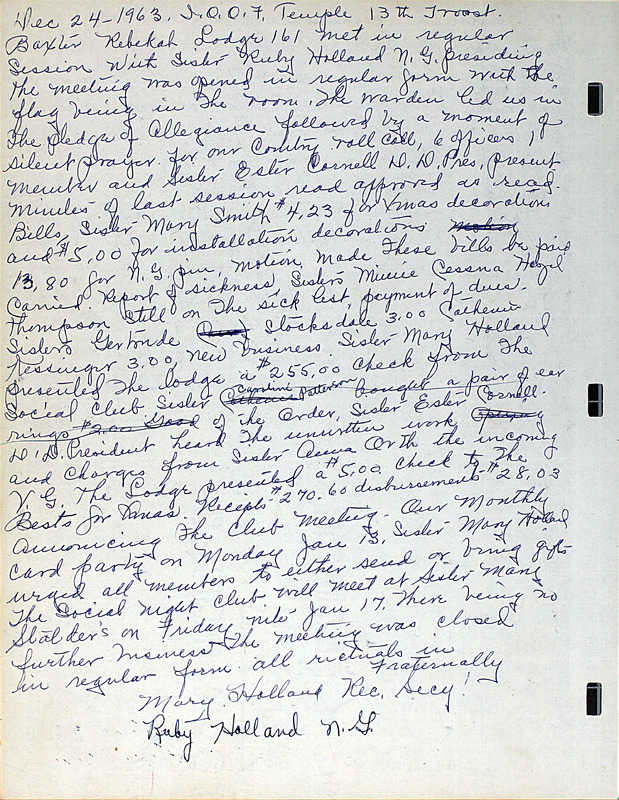 Dec 24-1963. I.O.O.F. Temple 13th Troost.
Baxter Rebekah Lodge 161 met in regular
Session with Sister Ruby Holland N.G. presiding
The meeting was opened in regular form with the
flag being in the room. The Warden led us in
the pledge of Allegiance followed by a moment of
silent prayer. for our Country roll call, 6 officers 1
member and Sister Ester Cornell D.D. Pres, present
minutes of last session read approved as read.
Bills, Sister Mary Smith $4,23 for Xmas decorations
and $5,00 for installation decorations motion
13,80 for N.G. pin, motion made These bills be paid
Carried. Report of sickness, Sisters Cessna Hazel
Thompson still on the sick list, payment of dues.
Sisters Gertrude Stocksdale 3.00
3.00 new business. Sister Mary Holland
presented The lodge a $255,00 check from The
Social Club Sister Caroline Patterson bought a pair of ear
rings $2.00 Good of the Order, Sister Ester Cornell.
D.D. President heard The unwritten work
and charges from Sister Anna Orth the incoming
V.G. The Lodge presented a $5,00 check to The
for Xmas. Receipts $270.60 disbursements $28,03
Announcing The Club meeting. Our Monthly
Card party on Monday Jan 13, Sister Mary Holland
urged all members to either send or bring gifts
The Social night Club will meet at Sister Mary
on Friday nite Jan 17. There being no
further business The meeting was closed
in regular form. all rictuals in
Fraternally
Mary Holland Rec. Secy!
Ruby Holland N.G.